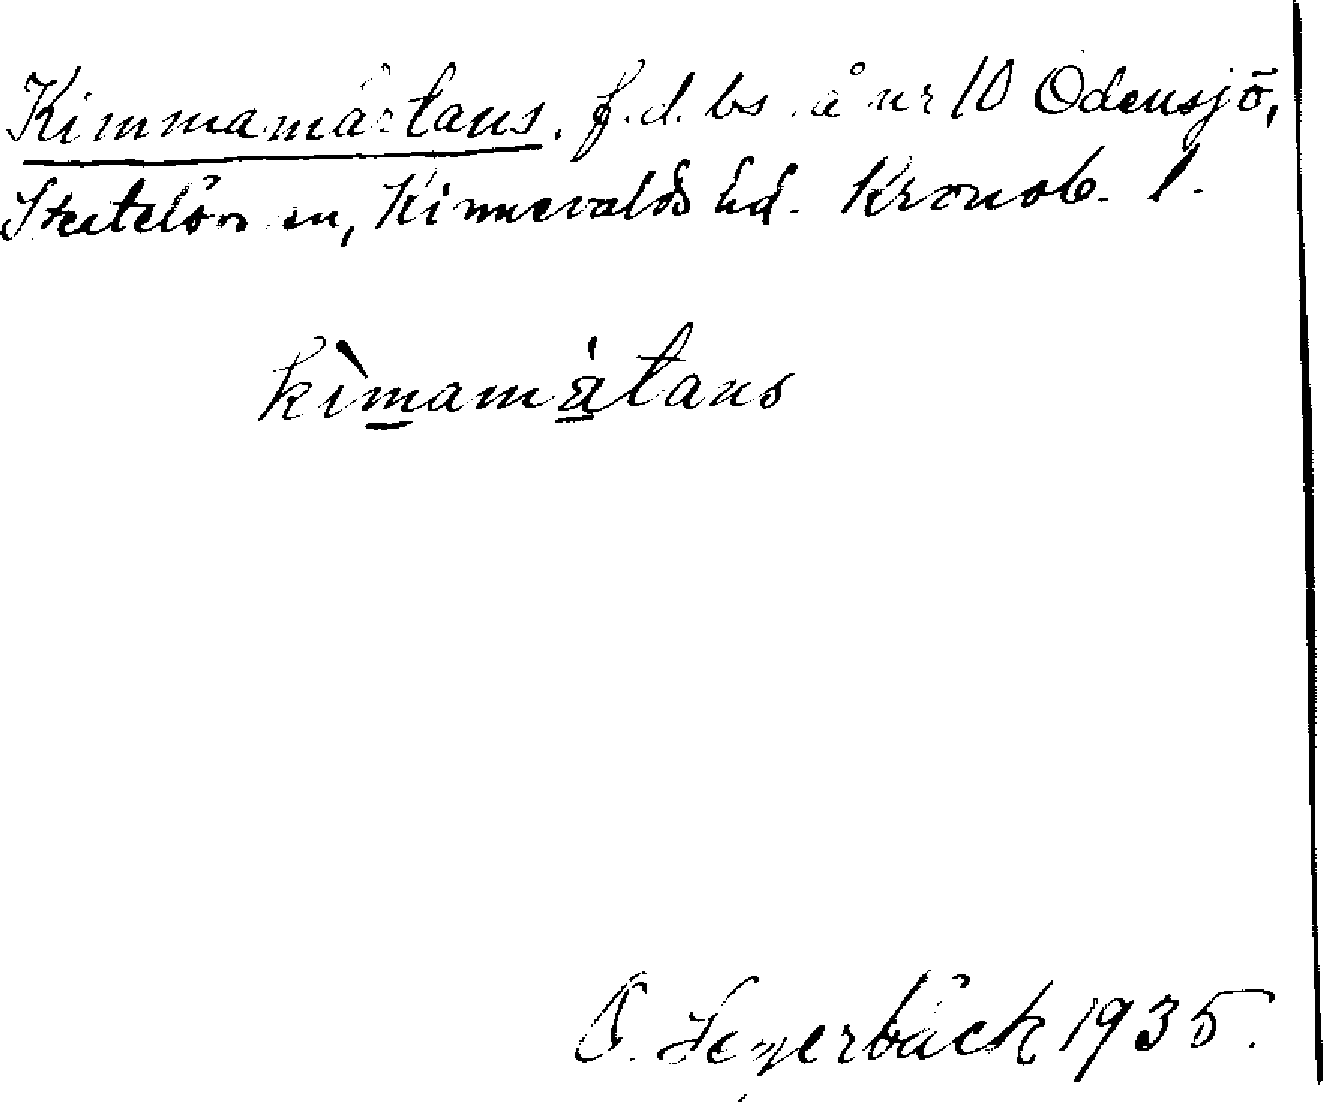 Kimmamårtans. f.d. bs å nr 10 Odensjö,
Skatelövs sn, Kinnevalds hd. Kronob. l.
kìmamátans
O. Segerbäck 1935.